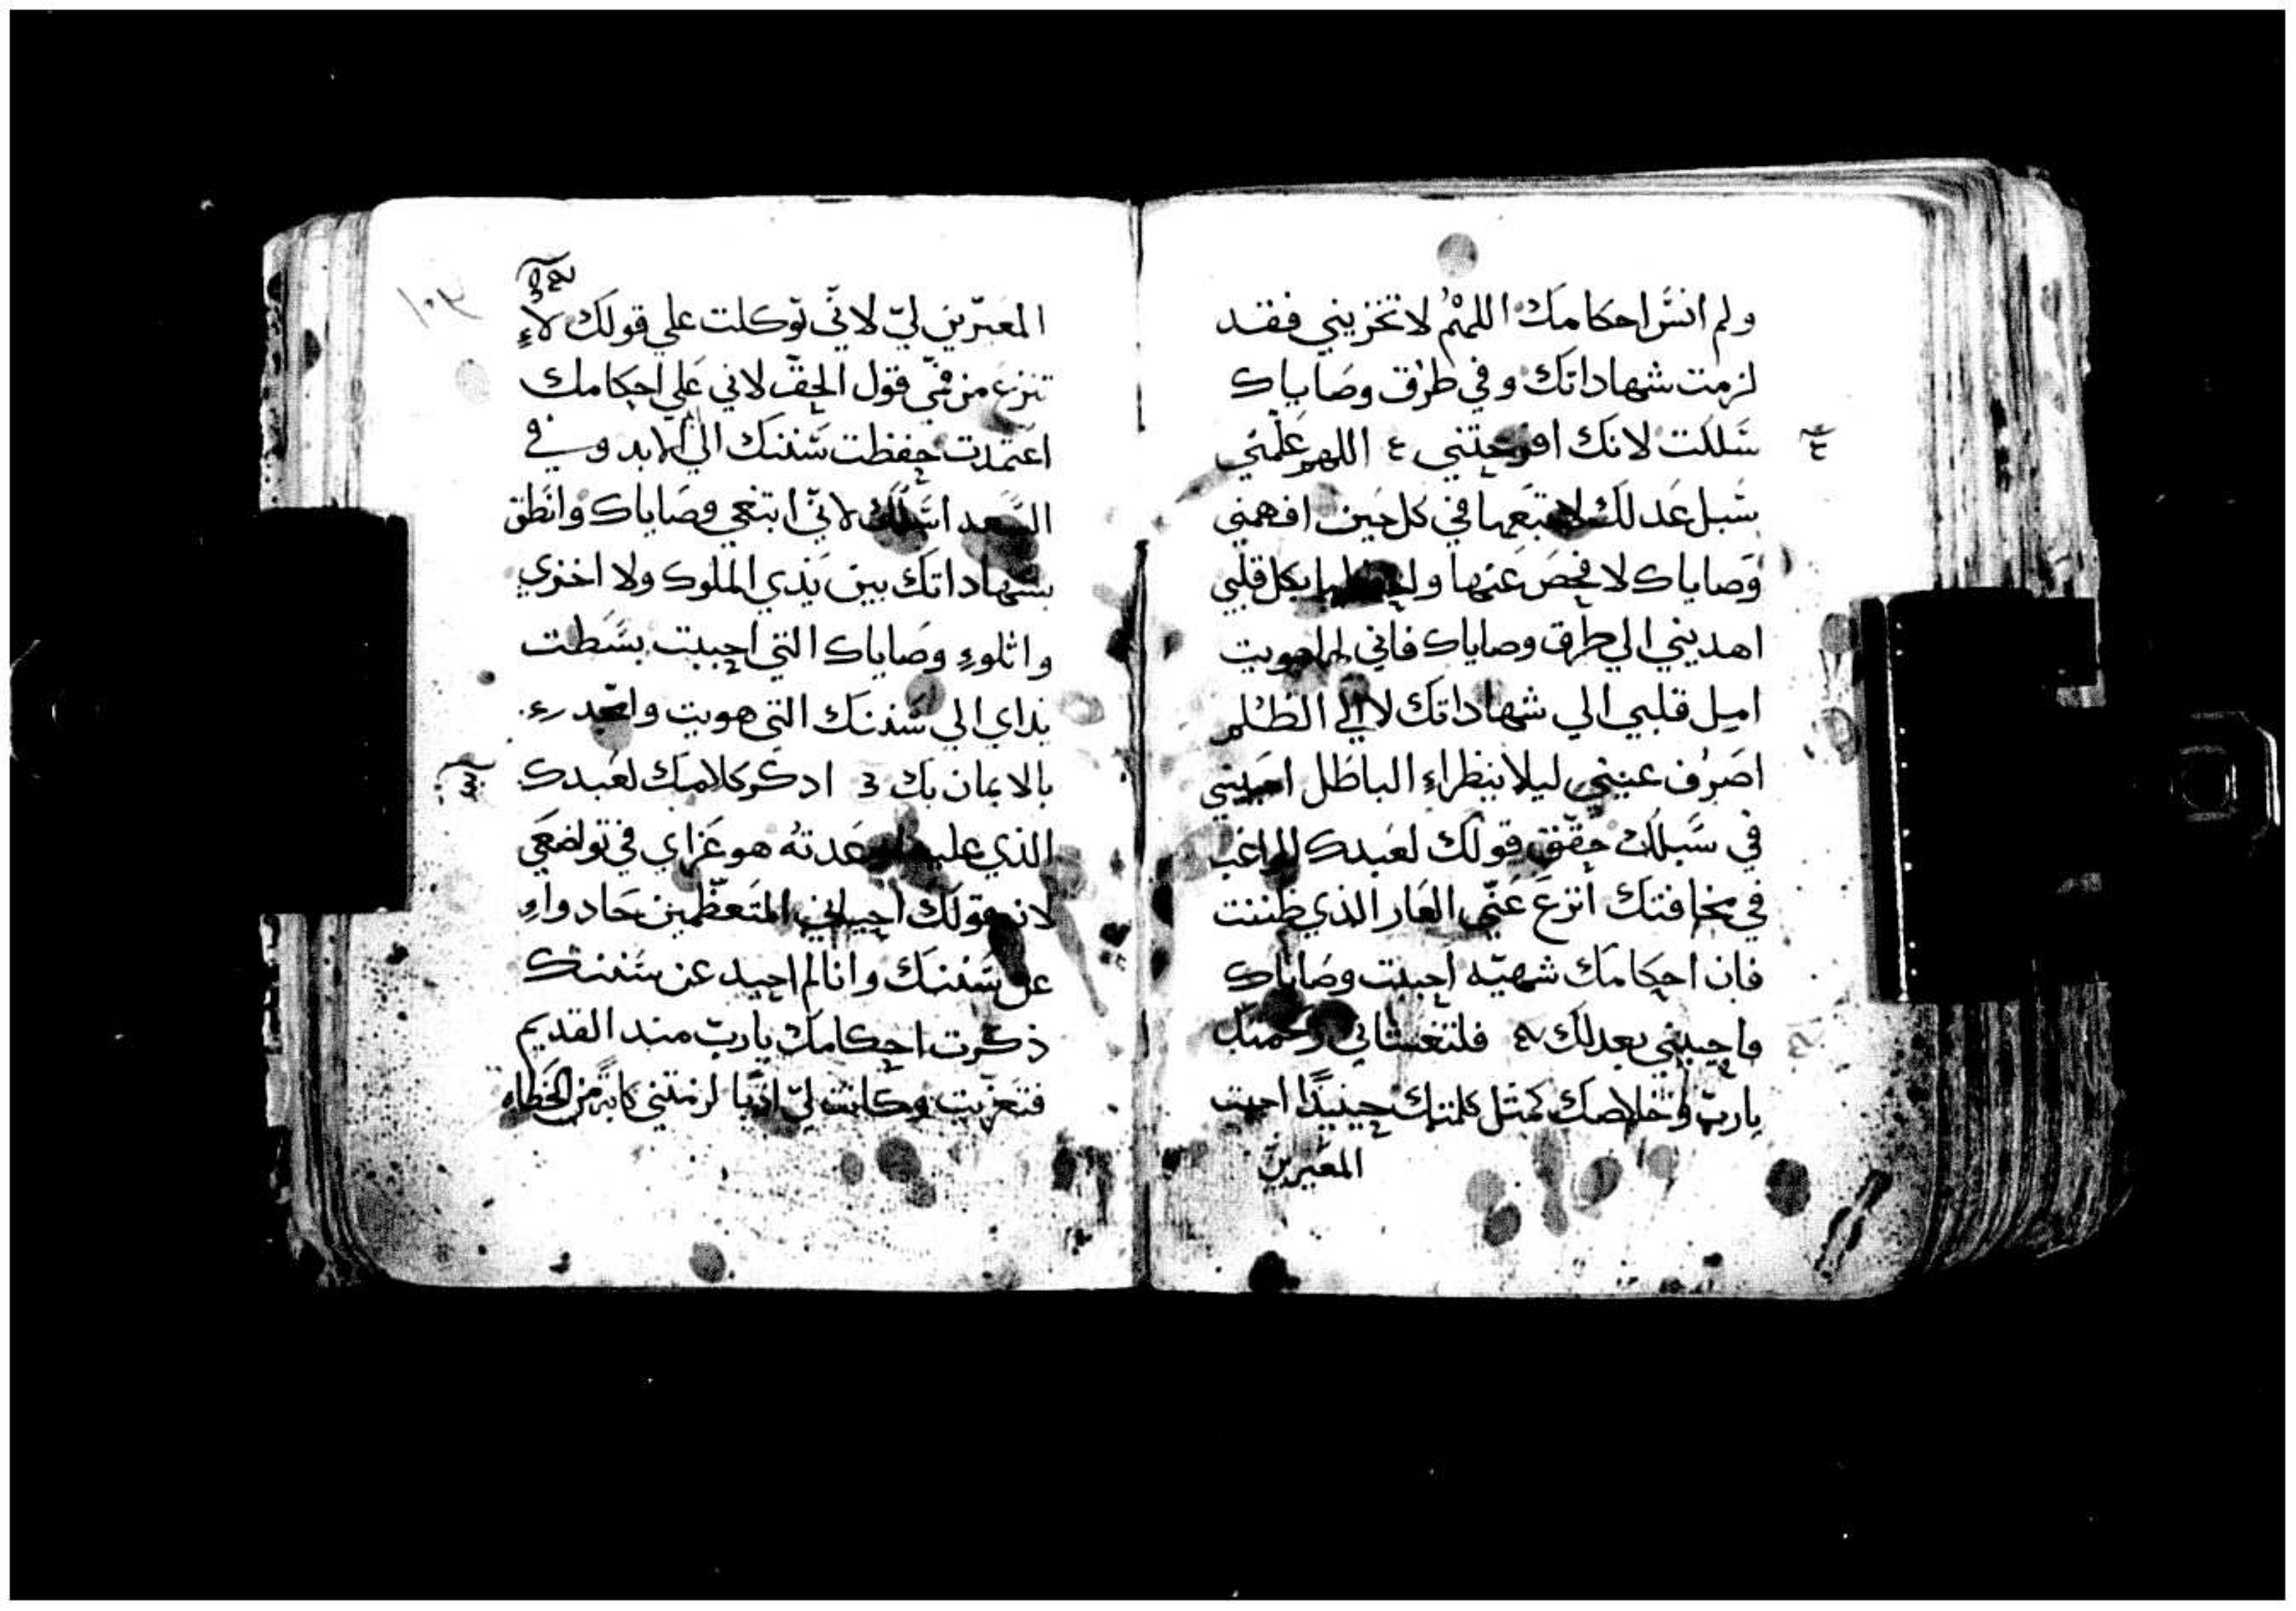 ولم انسَ احكامك اللهمُ لا تخزيني فقد
لزمت شهاداتك وفي طرق وصاياك
سلكت لانك افرحتني ع اللهم علمني
سبل عدلك لاتبعها في كل حين افهمني
وصاياك لافحص عنها بكل قلبي
اهديني الي طرق وصاياك فاني لها هويت
اميل قلبي الي شهاداتك لا الي الظلم
اصرف عيني ليلا ينظراء الباطل احييني
في سبلك حقق قولك لعبدك الراغب
في مخافتك انزع عنّي العار الذي ظننت
فان احكامك شهيّه احببت وصاياك
واحييني بعدلك فلتغشاني رحمتك
يارب وخلاصك كمثل كلمتك جيبًا
المعيرين
١٠٣
المعيّرين ليّ لانّي توكلت علي قولك لاء
تنزع من فمّي قول الحق لاني علي احكامك
اعتمدت حفظت سننك الي الابد وفي
السعه اسلك لانّي ابتغي وصاياك وانطق
بشهاداتك بين يدي الملوك ولا اخزي
واتلوء وصاياك التي احببت بسطت
يداي الي سننك التي هويت
بالايمان بك 3 ادكر كلامك لعبدك
الذي عليه وعدته هو عزاي في تواضعي
لان قولك احياني المتعظمين حادواو
عن سننك وانا لم احيد عن سننك
ذكرت احكامك يارب مند القديم
فتعزيت وكانت ليّ ادبًا لزمتني كابة من الخطاه